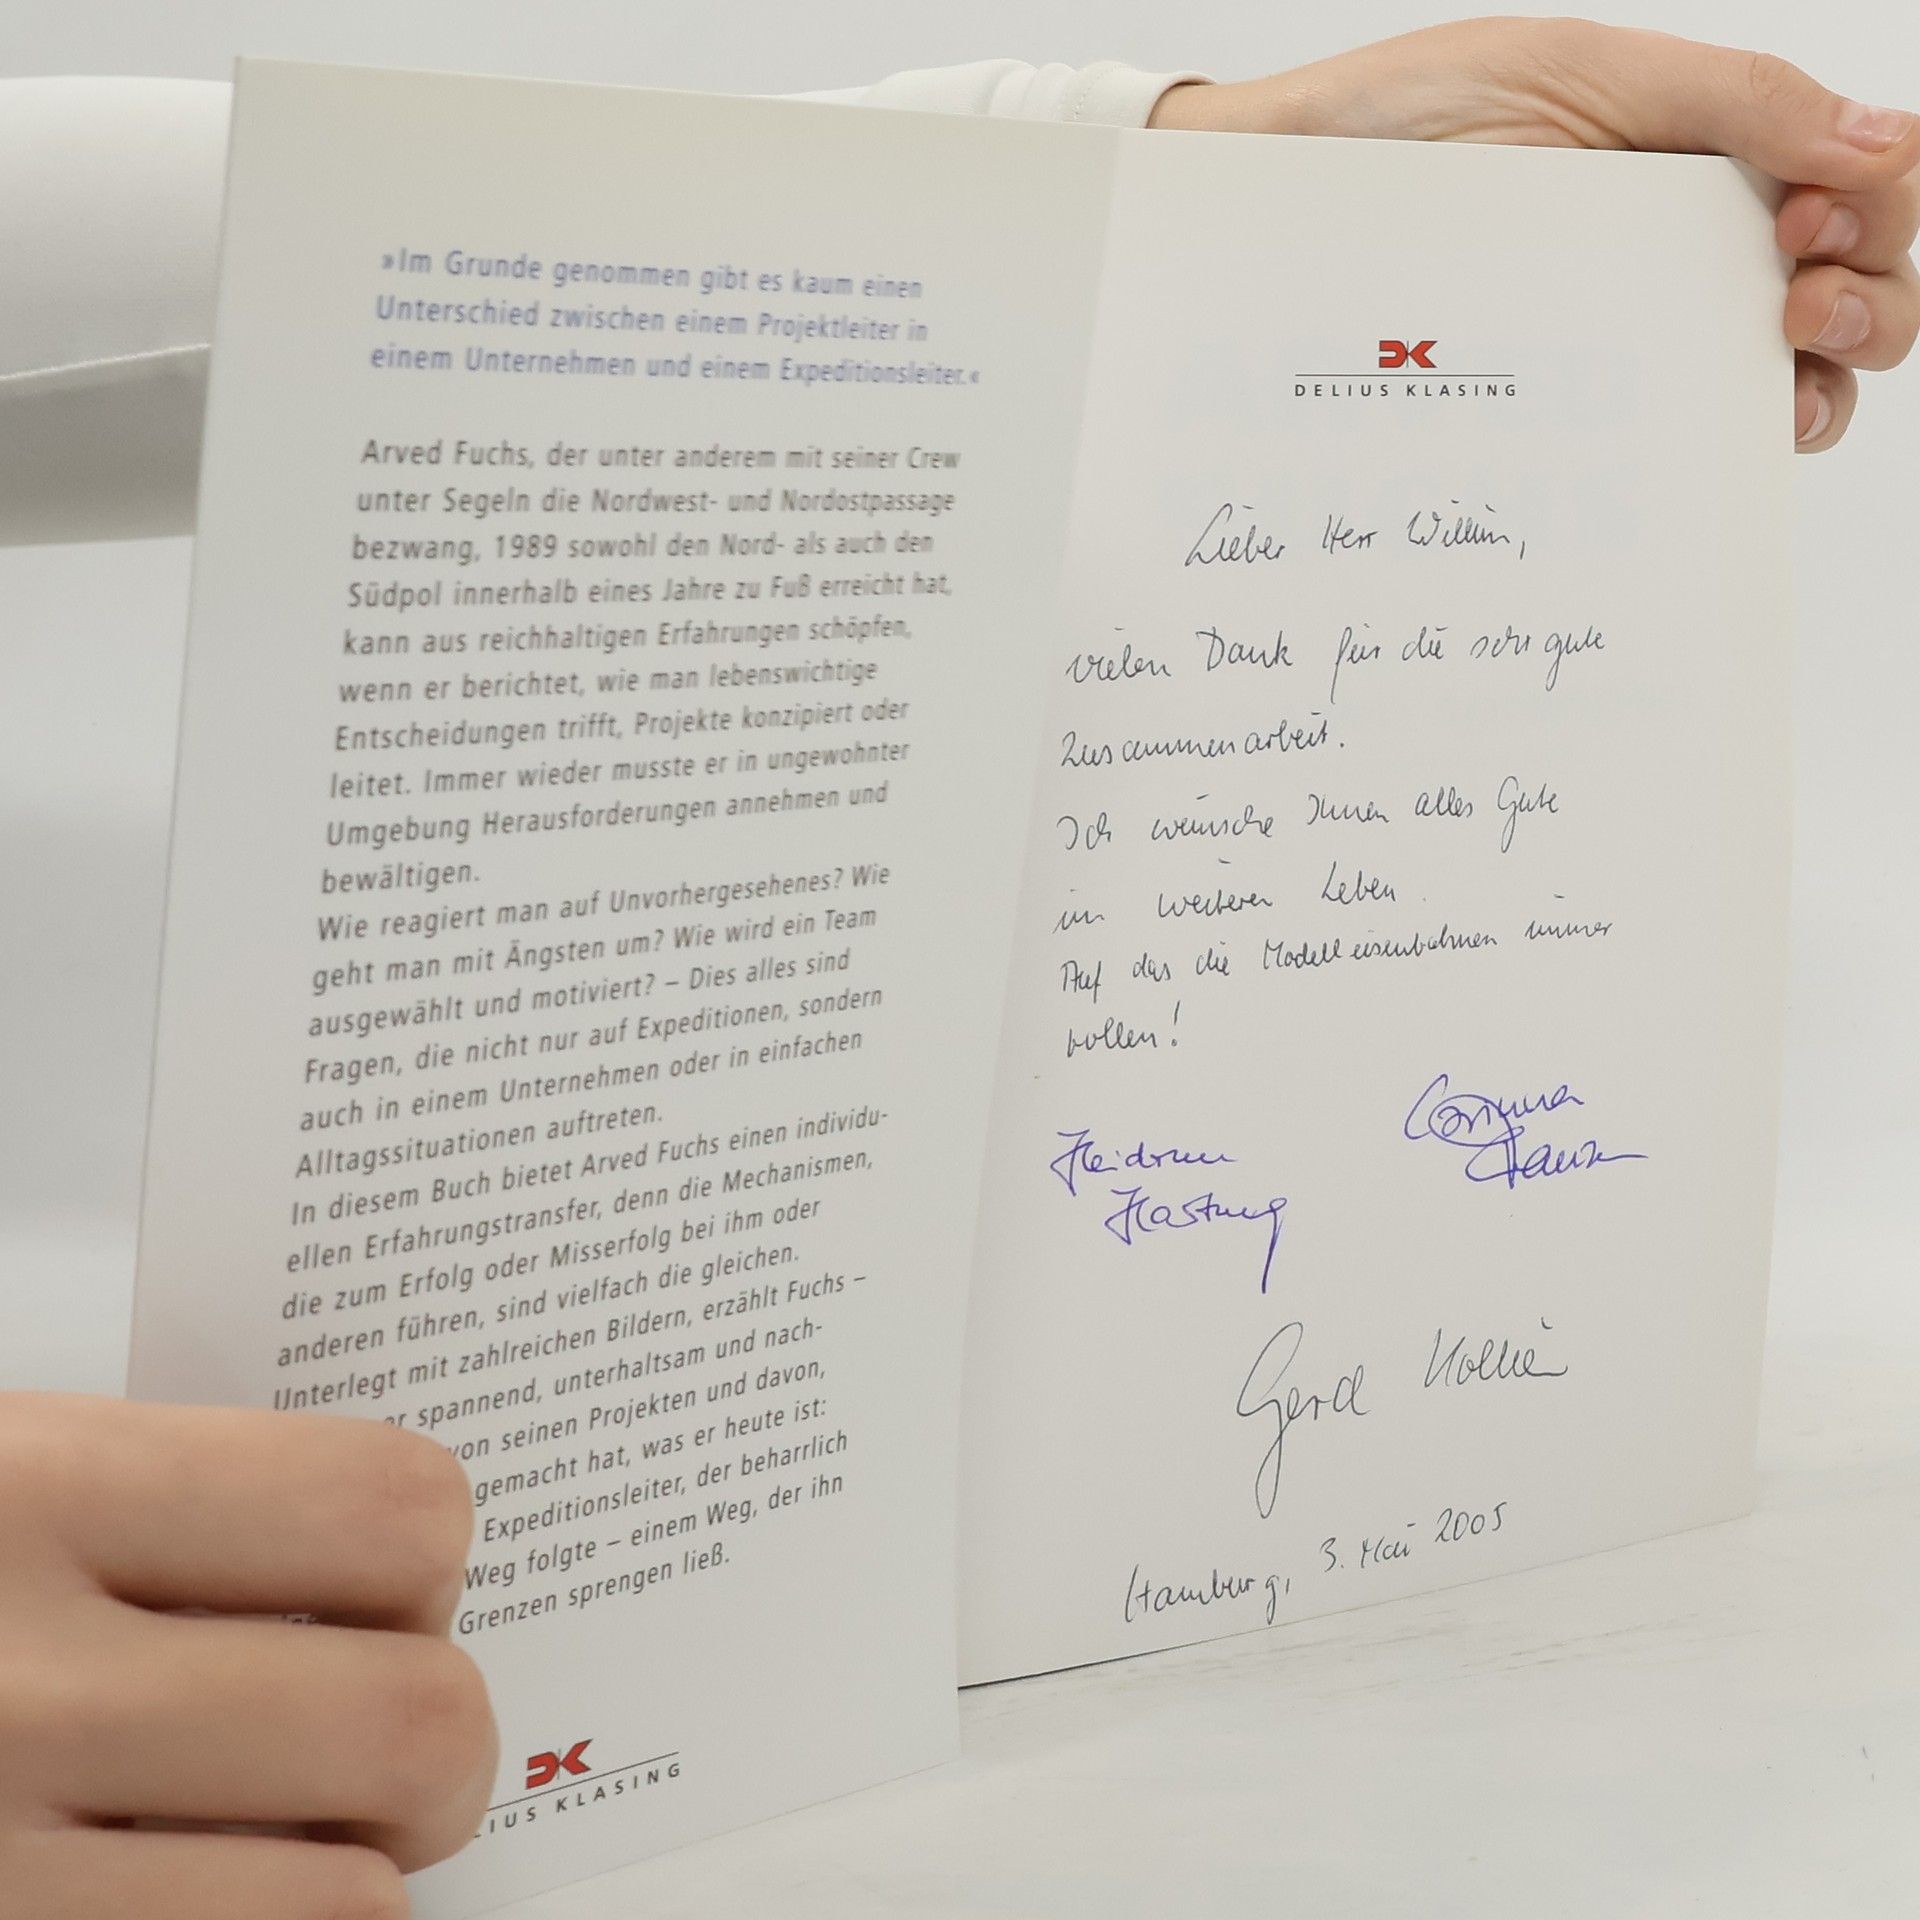 »Im Grunde genommen gibt es kaum einen
Unterschied zwischen einem Projektleiter in
einem Unternehmen und einem Expeditionsleiter.«
Arved Fuchs, der unter anderem mit seiner Crew
unter Segeln die Nordwest- und Nordostpassage
bezwang, 1989 sowohl den Nord- als auch den
Südpol innerhalb eines Jahre zu Fuß erreicht hat,
kann aus reichhaltigen Erfahrungen schöpfen,
wenn er berichtet, wie man lebenswichtige
Entscheidungen trifft, Projekte konzipiert oder
leitet. Immer wieder musste er in ungewohnter
Umgebung Herausforderungen annehmen und
bewältigen.
Wie reagiert man auf Unvorhergesehenes? Wie
geht man mit Ängsten um? Wie wird ein Team
ausgewählt und motiviert? – Dies alles sind
Fragen, die nicht nur auf Expeditionen, sondern
auch in einem Unternehmen oder in einfachen
Alltagssituationen auftreten.
In diesem Buch bietet Arved Fuchs einen individu-
ellen Erfahrungstransfer, denn die Mechanismen,
die zum Erfolg oder Misserfolg bei ihm oder
anderen führen, sind vielfach die gleichen.
Unterlegt mit zahlreichen Bildern, erzählt Fuchs –
er spannend, unterhaltsam und nach-
von seinen Projekten und davon,
gemacht hat, was er heute ist:
Expeditionsleiter, der beharrlich
Weg folgte – einem Weg, der ihn
Grenzen sprengen ließ.
LIUS KLASING
DELIUS KLASING
Lieber Herr
vielen Dank für die sehr gute
Zusammenarbeit.
Ich wünsche Ihnen alles Gute
im weiteren Leben.
Auf das die Modelleisenbahnen immer
rollen!
Corinna
Heidrun
Hastung
Gerd
Hamburg, 3. Mai 2005